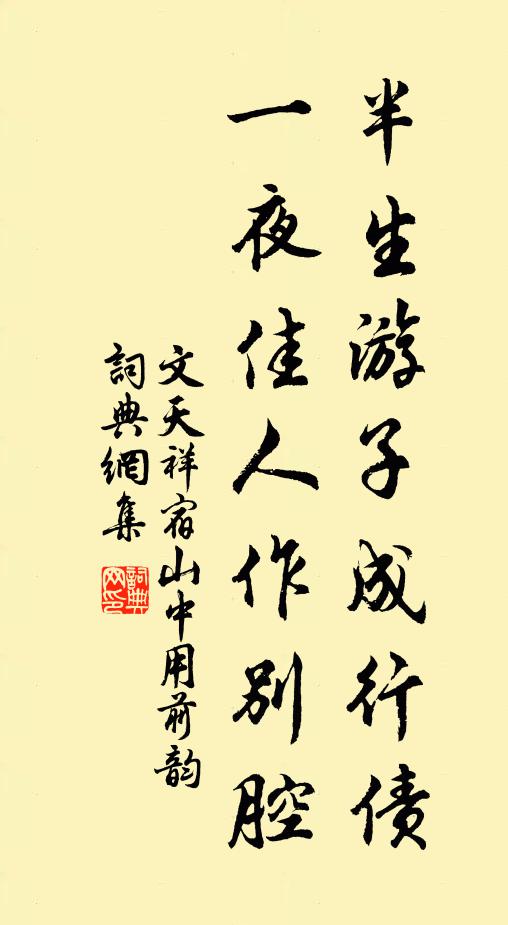 半生游子成行债
一夜佳人作别腔
文天祥宿山中用前韵
詞典網集
詞典網印